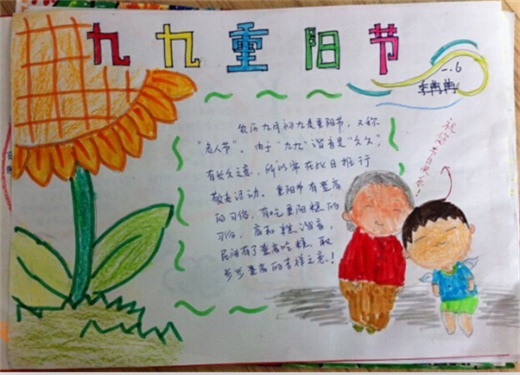 九九重阳节
一.6
农历九月初九是重阳节，又称
“老人节”。由于“九九”谐音是“久久”，
有长久之意，所以常在此日推行
敬老活动。重阳节有登高
的习俗，有吃重阳糕的
习俗，高和糕谐音，
民间有了登高吃糕，取
步步登高的吉祥之意！